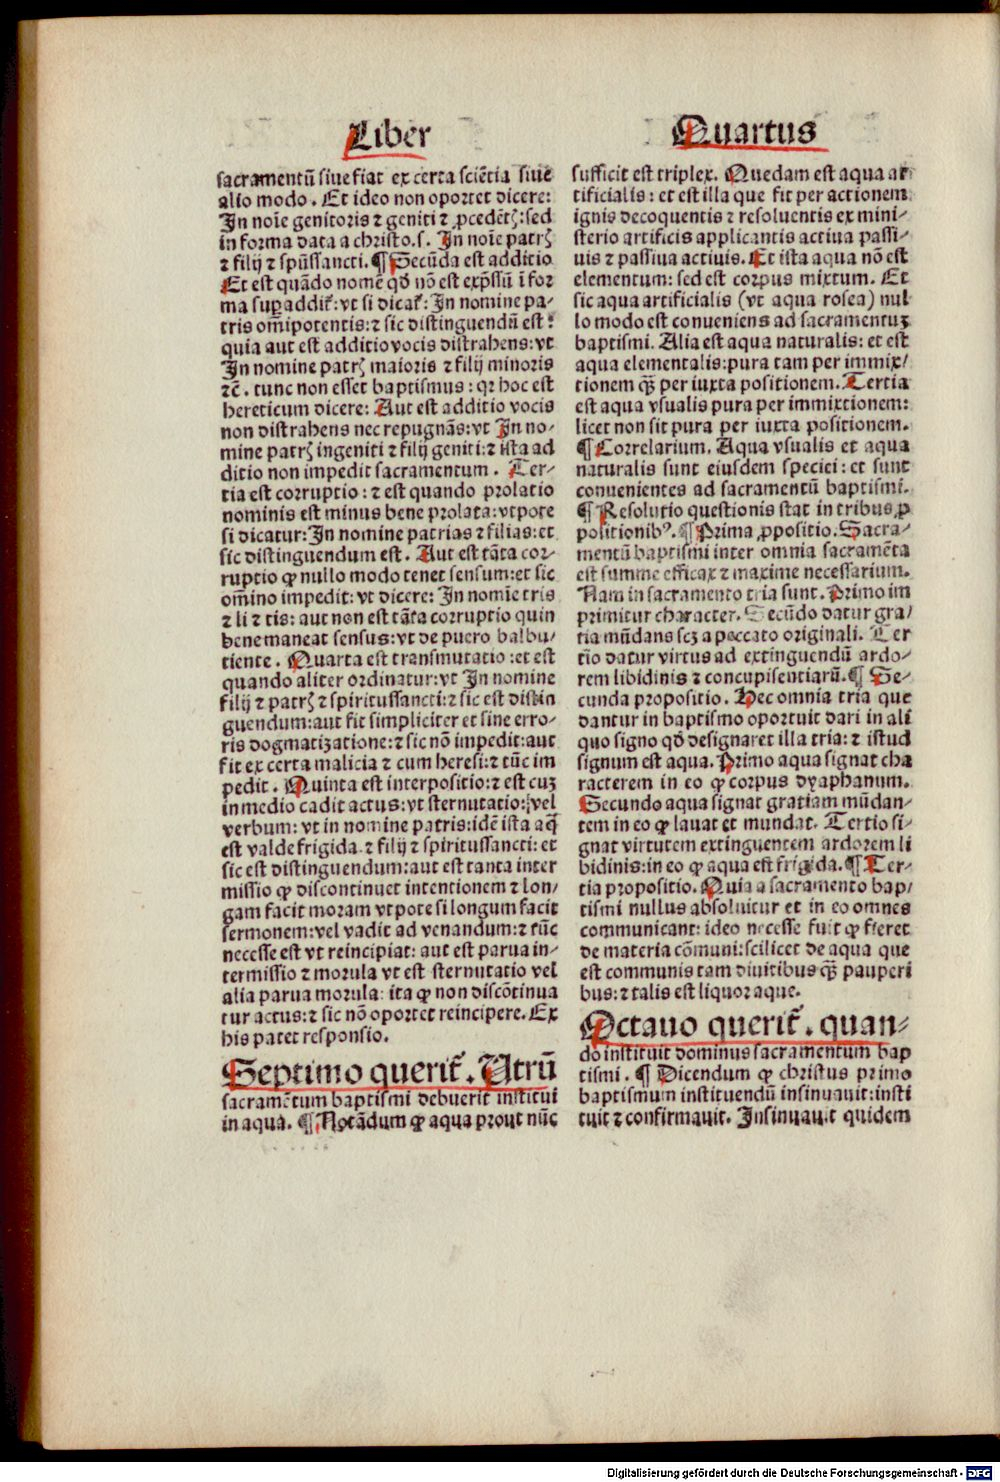 Liber
sacramentū siue fiat ex certa sciētia siue
alio modo. Et ideo non oportet dicere:
In noīe genitoris ⁊ geniti ⁊ ꝓcedētꝭ: sed
in forma data a christo. s. In noīe patrꝭ
⁊ filij ⁊ spūssancti. ¶ Secūda est additio
Et est quādo nomē qđ nō est exp̄ssū ī for
ma suꝑaddit̃: vt si dicat̃: In nomine pa-
tris om̄ipotentis: ⁊ sic distinguendū est:
quia aut est additio vocis distrahens: vt
In nomine patrꝭ maioris ⁊ filij minoris
⁊c̄. tunc non esset baptismus: qꝛ hoc est
hereticum dicere: Aut est additio vocis
non distrahens nec repugnās: vt In no-
mine patrꝭ ingeniti ⁊ filij geniti: ⁊ ista ad
ditio non impedit sacramentum. Ter-
tia est corruptio: ⁊ est quando prolatio
nominis est minus bene prolata: vtpote
si dicatur: In nomine patrias ⁊ filias: et
sic distinguendum est. Aut est tāta cor-
ruptio ꝙ nullo modo tenet sensum: et sic
om̄ino impedit: vt dicere: In nomīe tris
⁊ li ⁊ tis: aut non est tāta corruptio quin
bene maneat sensus: vt de puero balbu-
tiente. Quarta est transmutatio: et est
quando aliter ordinatur: vt In nomine
filij ⁊ patrꝭ ⁊ spiritussancti: ⁊ sic est distin
guendum: aut fit simpliciter et sine erro-
ris dogmatizatione: ⁊ sic nō impedit: aut
fit ex certa malicia ⁊ cum heresi: ⁊ tūc im
pedit. Quinta est interpositio: ⁊ est cuꝫ
in medio cadit actus: vt sternutatio: vel
verbum: vt in nomine patris: idē ista aq̄
est valde frigida. ⁊ filij ⁊ spiritussancti: et
sic est distinguendum: aut est tanta inter
missio ꝙ discontinuet intentionem ⁊ lon-
gam facit moram vtpote si longum facit
sermonem: vel vadit ad venandum: ⁊ tūc
necesse est vt reincipiat: aut est parua in-
termissio ⁊ morula vt est sternutatio vel
alia parua morula: ita ꝙ non discōtinua
tur actus: ⁊ sic nō oportet reincipere. Ex
his patet responsio.
Septimo querit̃. Utrū
sacramētum baptismi debuerit institui
in aqua. ¶ Notādum ꝙ aqua prout nūc
Quartus
sufficit est triplex. Quedam est aqua ar
tificialis: et est illa que fit per actionem
ignis decoquentis ⁊ resoluentis ex mini-
sterio artificis applicantis actiua passi-
uis ⁊ passiua actiuis. Et ista aqua nō est
elementum: sed est corpus mixtum. Et
sic aqua artificialis (vt aqua rosea) nul
lo modo est conueniens ad sacramentuꝫ
baptismi. Alia est aqua naturalis: et est
aqua elementalis: pura tam per immix-
tionem qꝫ̄ per iuxta positionem. Tertia
est aqua vsualis pura per immixtionem:
licet non sit pura per iuxta positionem.
¶ Correlarium. Aqua vsualis et aqua
naturalis sunt eiusdem speciei: et sunt
conuenientes ad sacramentū baptismi.
¶ Resolutio questionis stat in tribus ꝓ
positionibꝰ. ¶ Prima ꝓpositio. Sacra-
mentū baptismi inter omnia sacramēta
est summe efficax ⁊ maxime necessarium.
Nam in sacramento tria sunt. Primo im
primitur character. Secūdo datur gra-
tia mūdans scꝫ a peccato originali. Ter
tīo datur virtus ad extinguendū ardo-
rem libidinis ⁊ concupisentiarū. ¶ Se-
cunda propositio. Hec omnia tria que
dantur in baptismo oportuit dari in ali
quo signo qđ designaret illa tria: ⁊ istud
signum est aqua. Primo aqua signat cha
racterem in eo ꝙ corpus dyaphanum.
Secundo aqua signat gratiam mūdan-
tem in eo ꝙ lauat et mundat. Tertio si-
gnat virtutem extinguentem ardorem li
bidinis: in eo ꝙ aqua est frigida. ¶ Ter-
tia propositio. Quia a sacramento bap-
tismi nullus absoluitur et in eo omnes
communicant: ideo necesse fuit ꝙ fieret
de materia cōmuni: scilicet de aqua que
est communis tam diuitibus qꝫ̄ pauperi
bus: ⁊ talis est liquor aque.
Octauo querit̃. quan-
do instituit dominus sacramentum bap
tismi. ¶ Dicendum ꝙ christus primo
baptismum instituendū insinuauit: insti
tuit ⁊ confirmauit. Insinuauit quidem
Digitalisierung gefördert durch die Deutsche Forschungsgemeinschaft - DFG